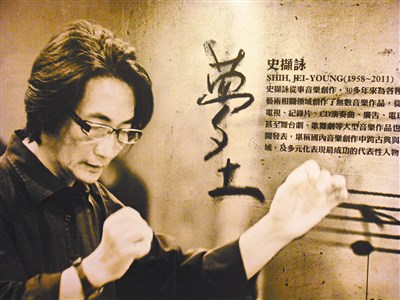 夢土
史擷詠
SHIH, JEI-YOUNG(1958~2011)
史擷詠從事音樂創作，30多年來為各種
藝術相關領域創作了無數音樂作品，從
電視、紀錄片、CD演奏曲、廣告、電
甚至舞台劇、歌舞劇等大型音樂作品也
開發表，堪稱國內音樂創作中跨古典與
域，及多元化表現最成功的代表性人物